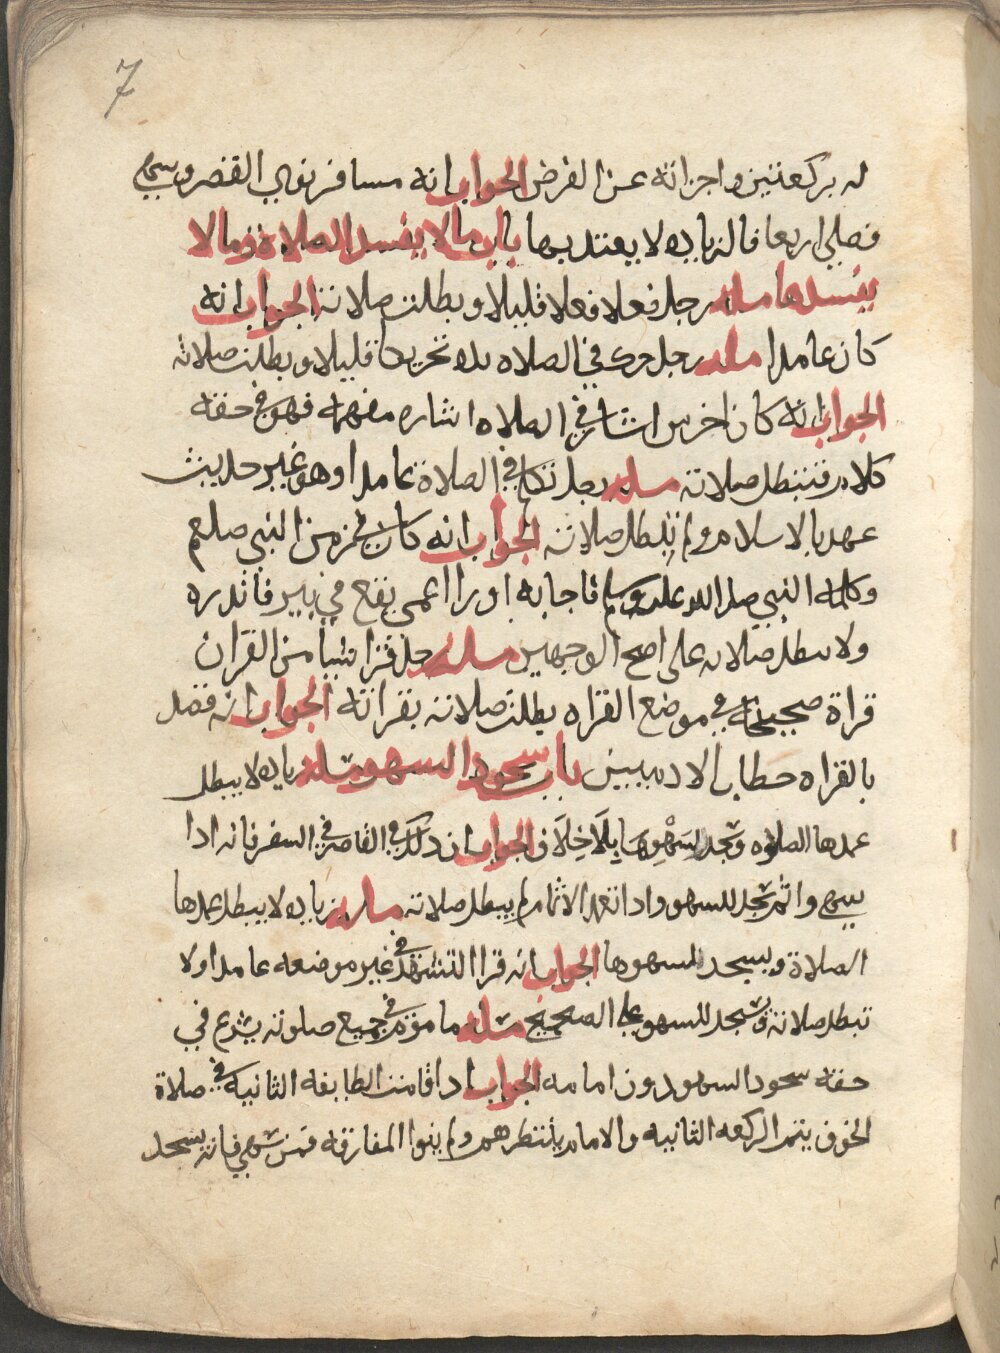 7
له بركعتين واجزاته عن الفرض الجواب انه مسافر نوي القصر وسهي
فصلي اربعا فالزياده لا يعتد بها باب ما لا يفسد الصلاة وما لا
يفسدها مسله رجل فعل فعلا قليلا وبطلت صلاته الجواب انه
كان عامدا مسله رجل حرك في الصلاه يده تحريكا قليلا وبطلت صلاته
الجواب انه كان اخرس اشار في الصلاه اشاره مفهمه فهو في حقه
كلام فتبطل صلاته مسله رجل تكلم في الصلاة عامدا وهو غير حديث
عهد بالاسلام ولم تبطل صلاته الجواب انه كان في زمن النبي صلعم
وكلمه النبي صلى الله عليه وسلم فاجابه او راا اعمى يقع في بير فانذره
ولا تبطل صلاته على اصح الوجهين مسله رجل قرا شيا من القران
قراة صحيحة في موضع القراه بطلت صلاته بقراته الجواب انه قصد
بالقراه خطاب الادميين باب سجود السهو مسله زياده لا يبطل
عمدها الصلوه وسجد لسهوها بلا خلاف الجواب ان ذلك في القاصر في السفر فانه اذا
سهي واتم سجد للسهو واذا تعمد الاتمام لم يبطل صلاته مسله زياده لا يبطل عمدها
الصلاة ويسجد لسهوها الجواب انه قرا التشهد في غير موضعه عامدا ولا
تبطل صلاته ويسجد للسهو على الصحيح مسله ماموم في جميع صلوته يشرع في
حقه سجود السهو دون امامه الجواب اذا قامت الطايفه الثانية في صلاة
الخوف يتم الركعه الثانيه والامام ينتظرهم ولم ينوا المفارقه فمن سهي فانه يسجد